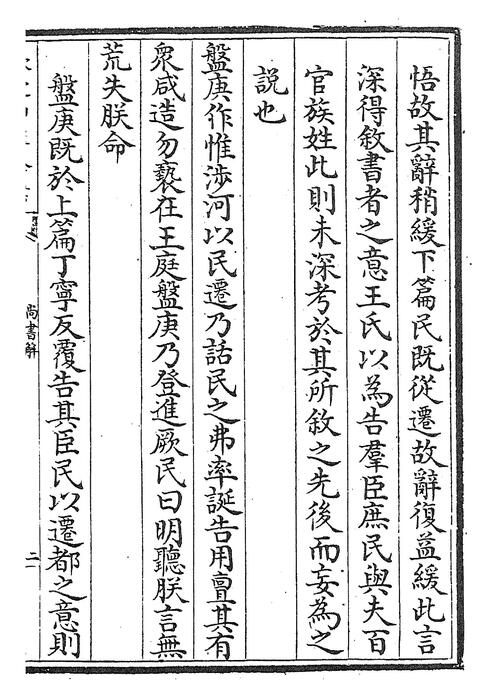 悟故其辭稍緩下篇民既從遷故辭復益緩此言
深得敘書者之意王氏以為告羣臣庶民與夫百
官族姓此則未深考於其所敘之先後而妄為之
説也
盤庚作惟涉河以民遷乃話民之弗率誕告用亶其有
衆咸造勿褻在王庭盤庚乃登進厥民曰明聽朕言無
荒失朕命
盤庚既於上篇丁寧反覆告其臣民以遷都之意則
尚書解
二